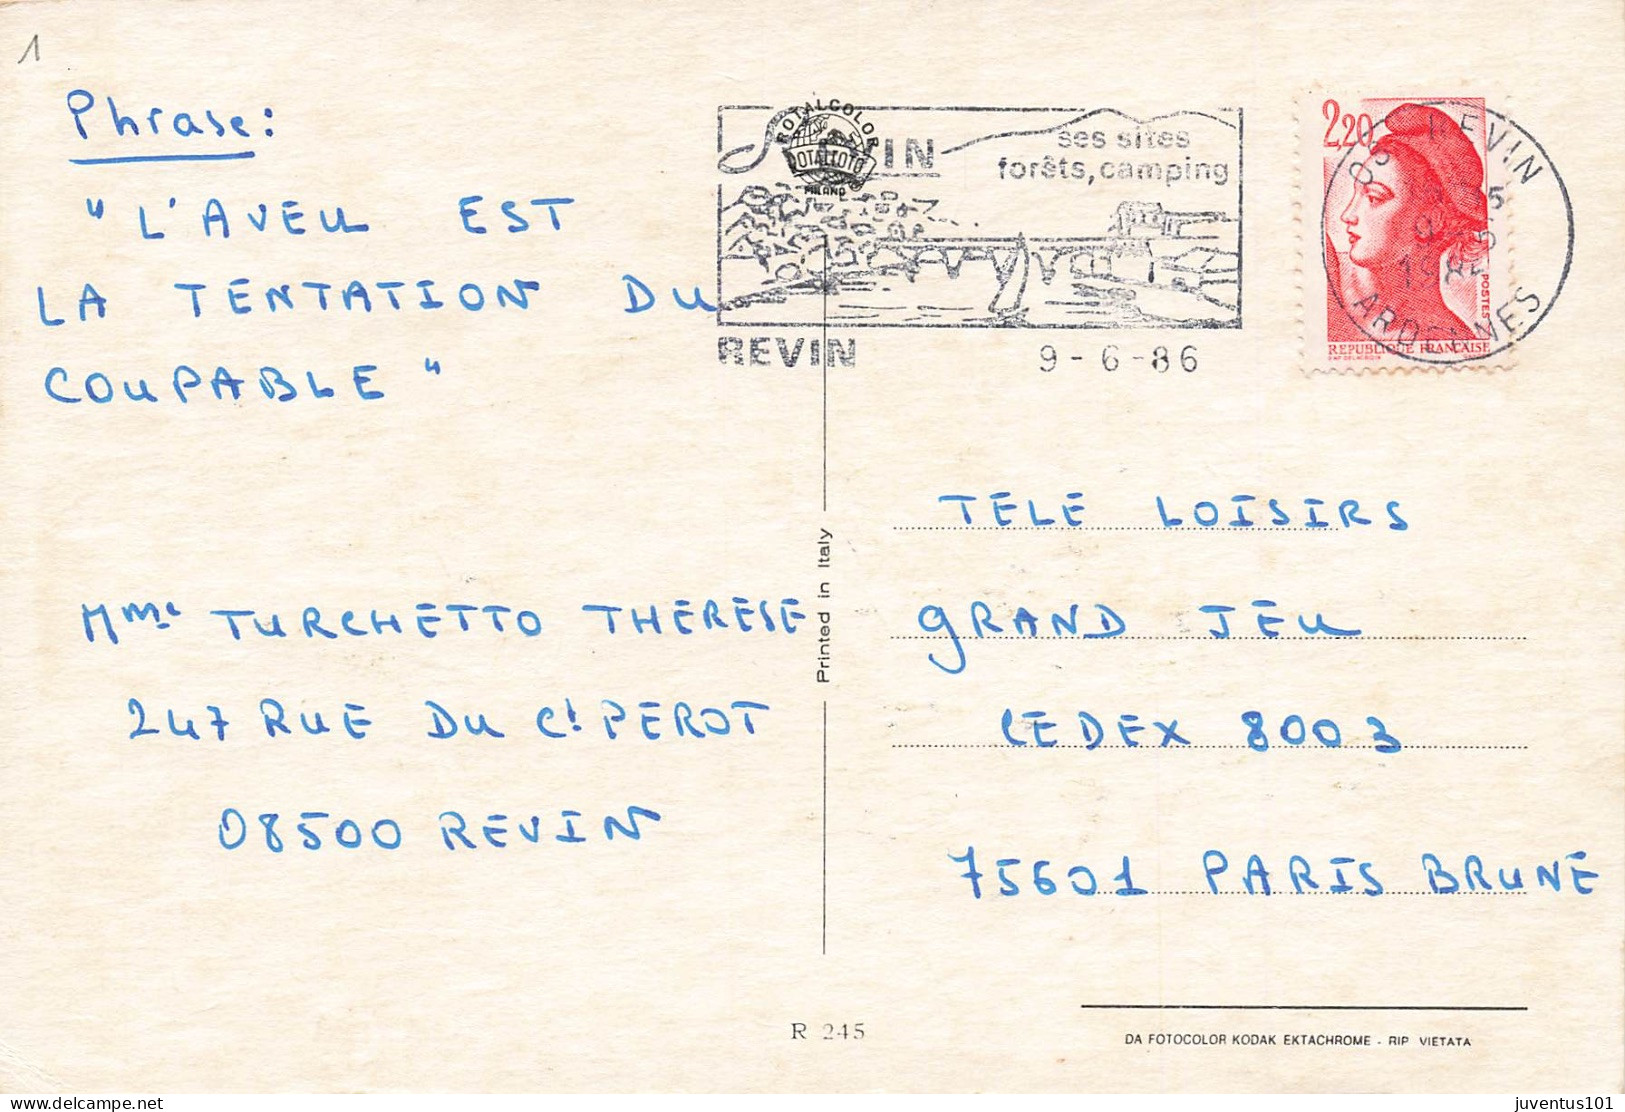 1
Phrase:
" L'AVEU EST
LA TENTATION DU
COUPABLE "
Mme TURCHETTO THERESE
247 RUE DU Ct PEROT
08500 REVIN
ROTALCOLOR
ROTALFOTO
MILANO
IN
ses sites
forêts, camping
REVIN
9-6-86
2,20
POSTES
REPUBLIQUE FRANCAISE
08 REVIN
ARDENNES
TELE LOISIRS
GRAND JEU
CEDEX 8003
75601 PARIS BRUNE
Printed in Italy
R 245
DA FOTOCOLOR KODAK EKTACHROME - RIP. VIETATA
delcampe.net
juventus101